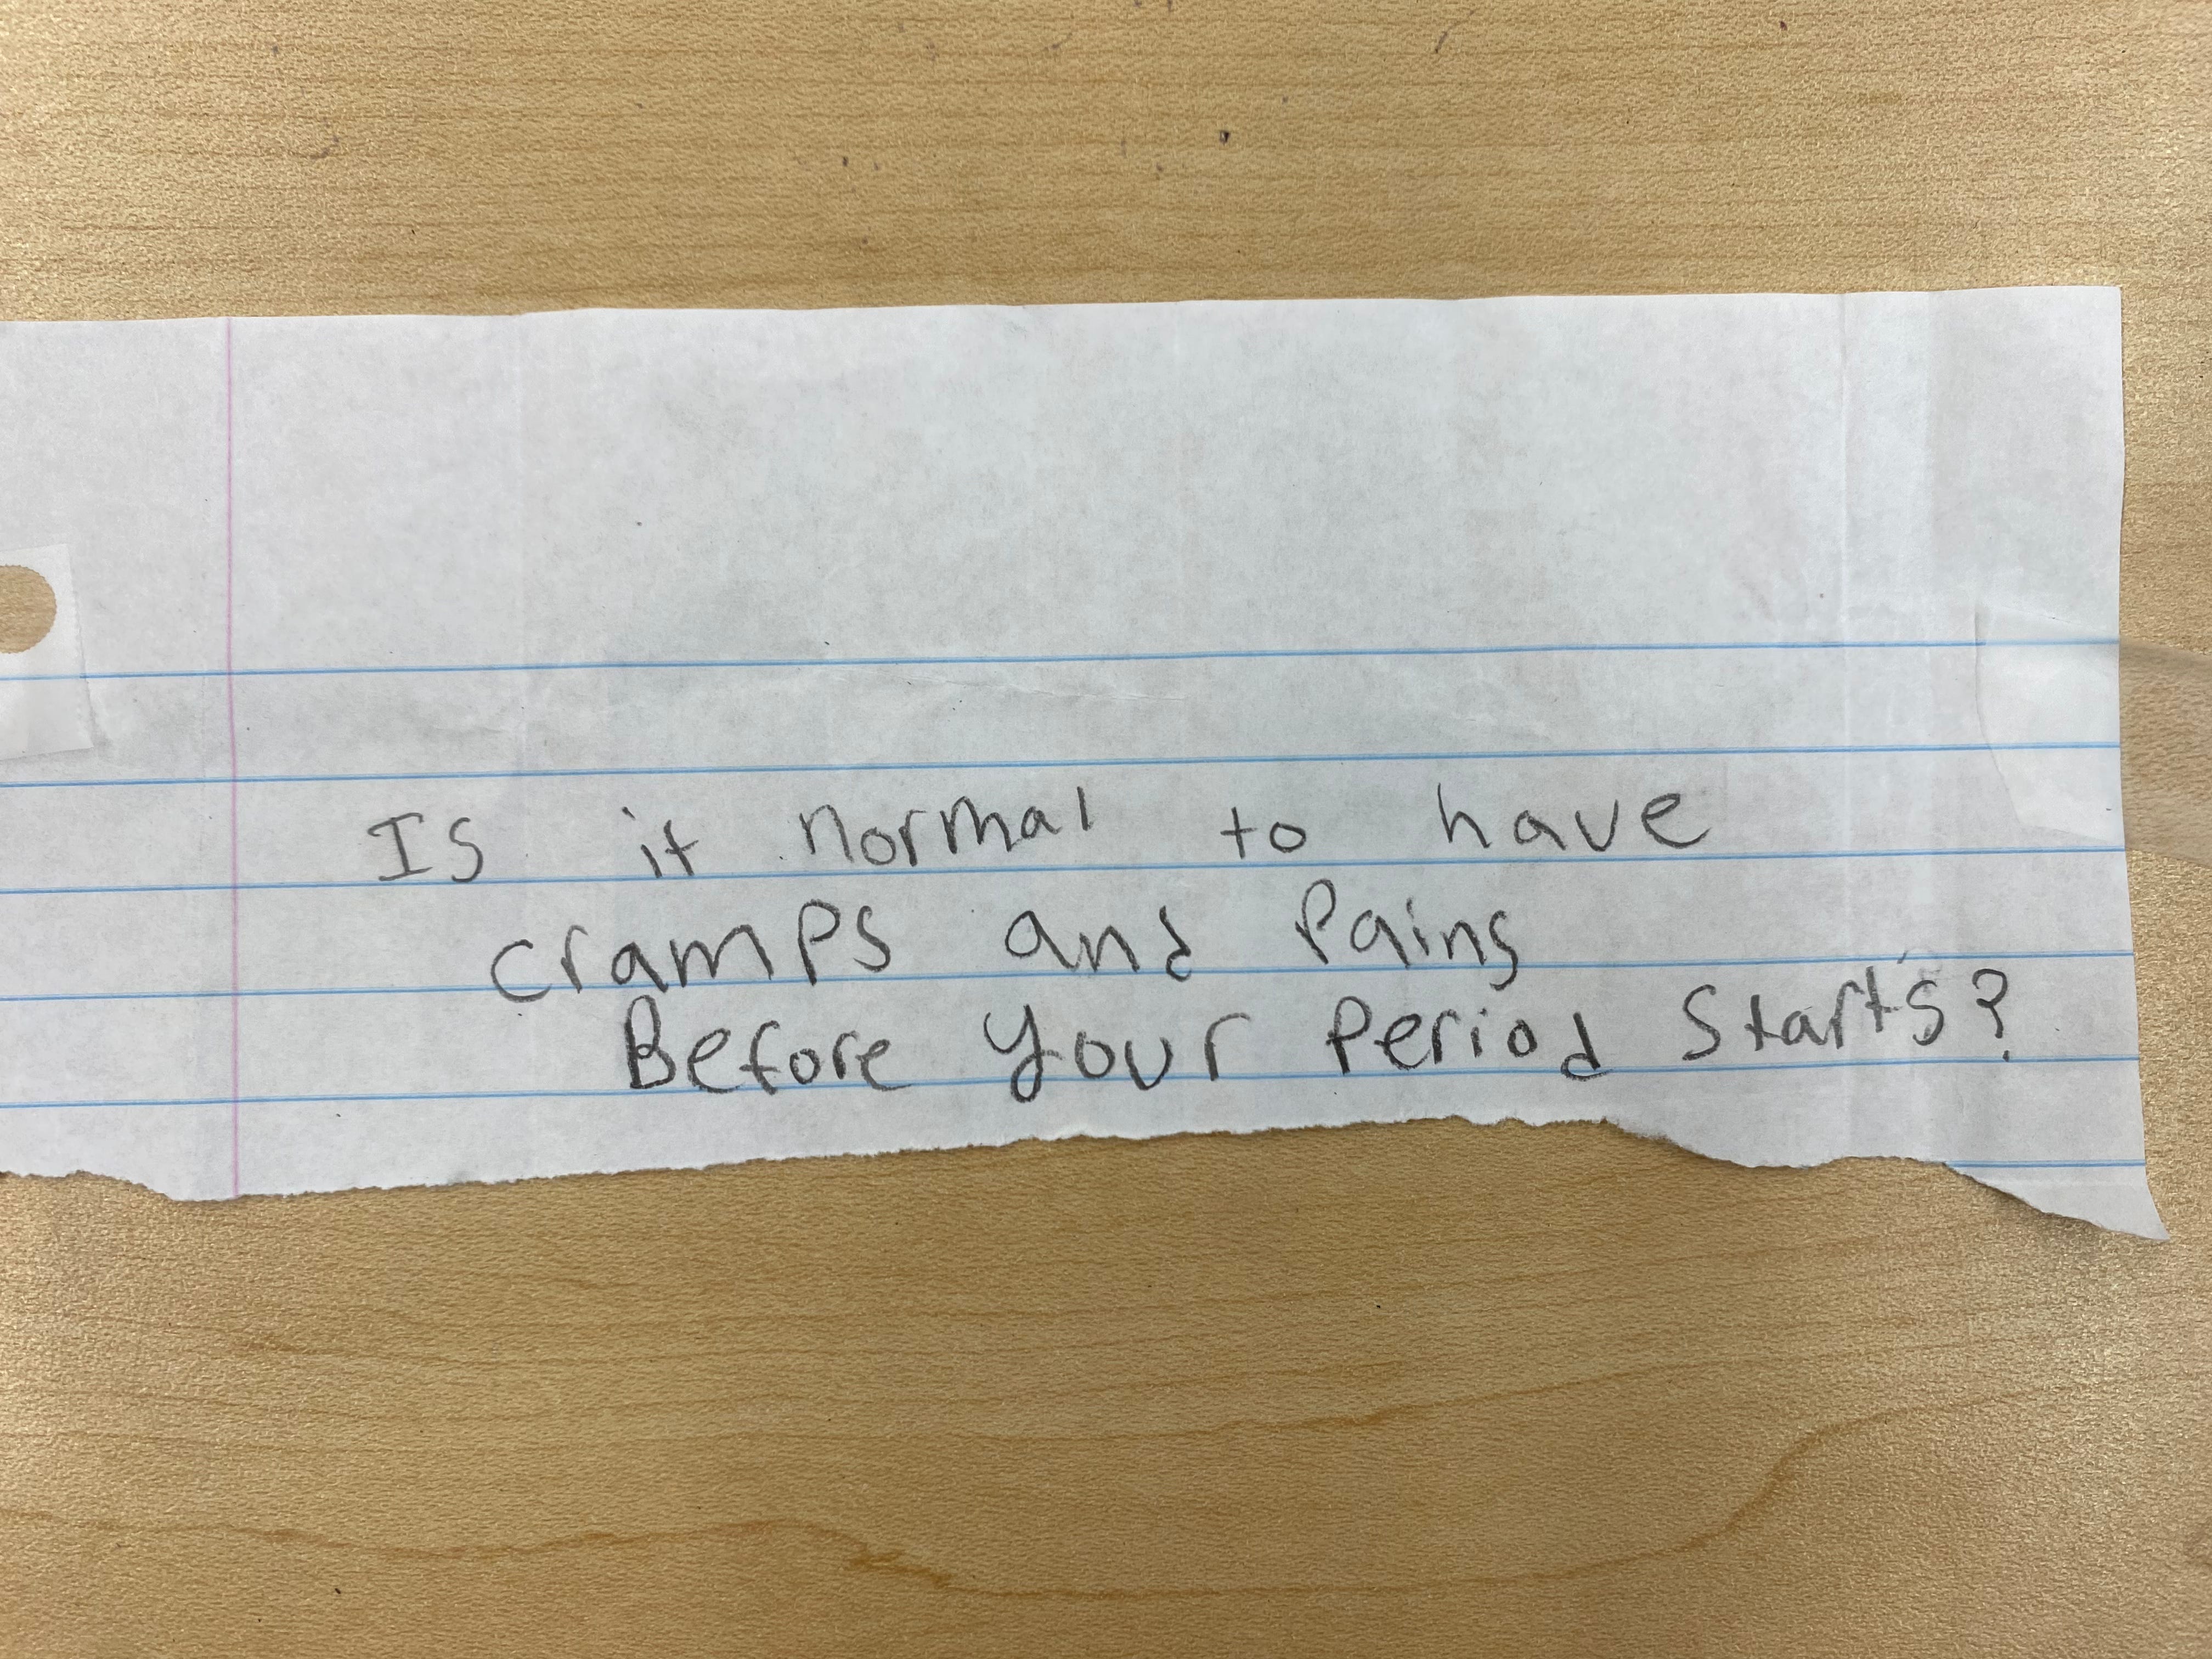 Is it normal to have
cramps and Pains
Before your Period Starts?